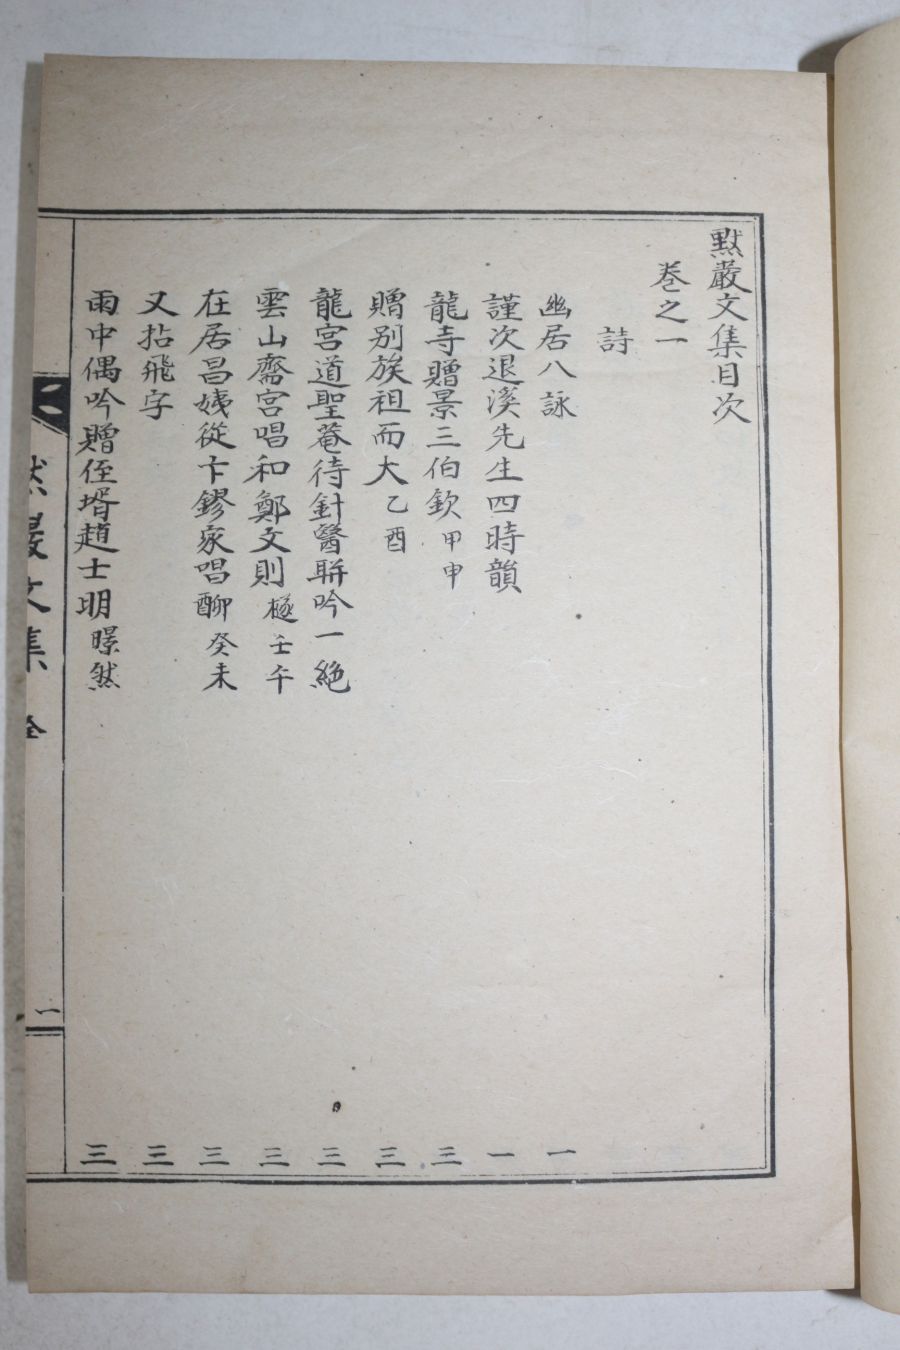 默巖文集目次
卷之一
詩
幽居八詠 一
謹次退溪先生四時韻 一
龍寺贈景三伯欽 甲申 三
贈別族祖而大 乙酉 三
龍宮道聖菴待針醫聯吟一絶 三
雲山齋宮唱和鄭文則 㮨 壬午 三
在居昌姨從卞鏐家唱酬 癸未 三
又拈飛字 三
雨中偶吟贈侄壻趙士明 㬌然 三
默巖文集 全 一